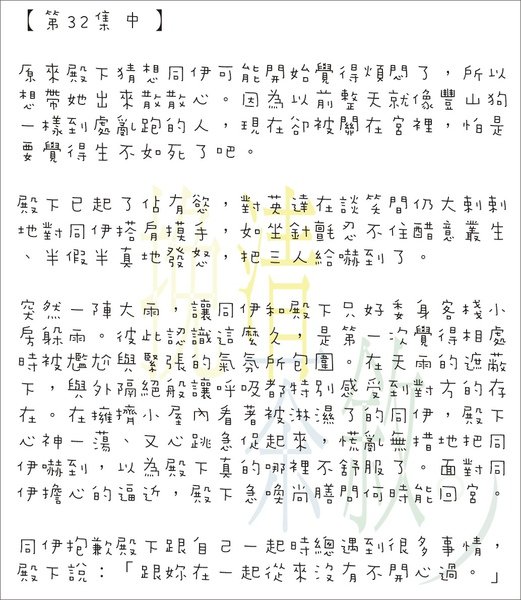 【第32集中】
原來殿下猜想同伊可能開始覺得煩悶了，所以
想帶她出來散散心。因為以前整天就像豐山狗
一樣到處亂跑的人，現在卻被關在宮裡，怕是
要覺得生不如死了吧。
殿下已起了佔有慾，對英達在談笑間仍大剌剌
地對同伊搭肩摸手，如坐針氈忍不住醋意叢生
、半假半真地發怒，把三人給嚇到了。
突然一陣大雨，讓同伊和殿下只好委身客棧小
房躲雨。彼此認識這麼久，是第一次覺得相處
時被尷尬與緊張的氣氛所包圍。在天雨的遮蔽
下，與外隔絕般讓呼吸都特別感受到對方的存
在。在擁擠小屋內看著被淋濕了的同伊，殿下
心神一蕩，又心跳急促起來，慌亂無措地把同
伊嚇到，以為殿下真的哪裡不舒服了。面對同
伊擔心的逼近，殿下急喚尚膳問何時能回宮。
同伊抱歉殿下跟自己一起時總遇到很多事情，
殿下說：「跟妳在一起從來沒有不開心過。」